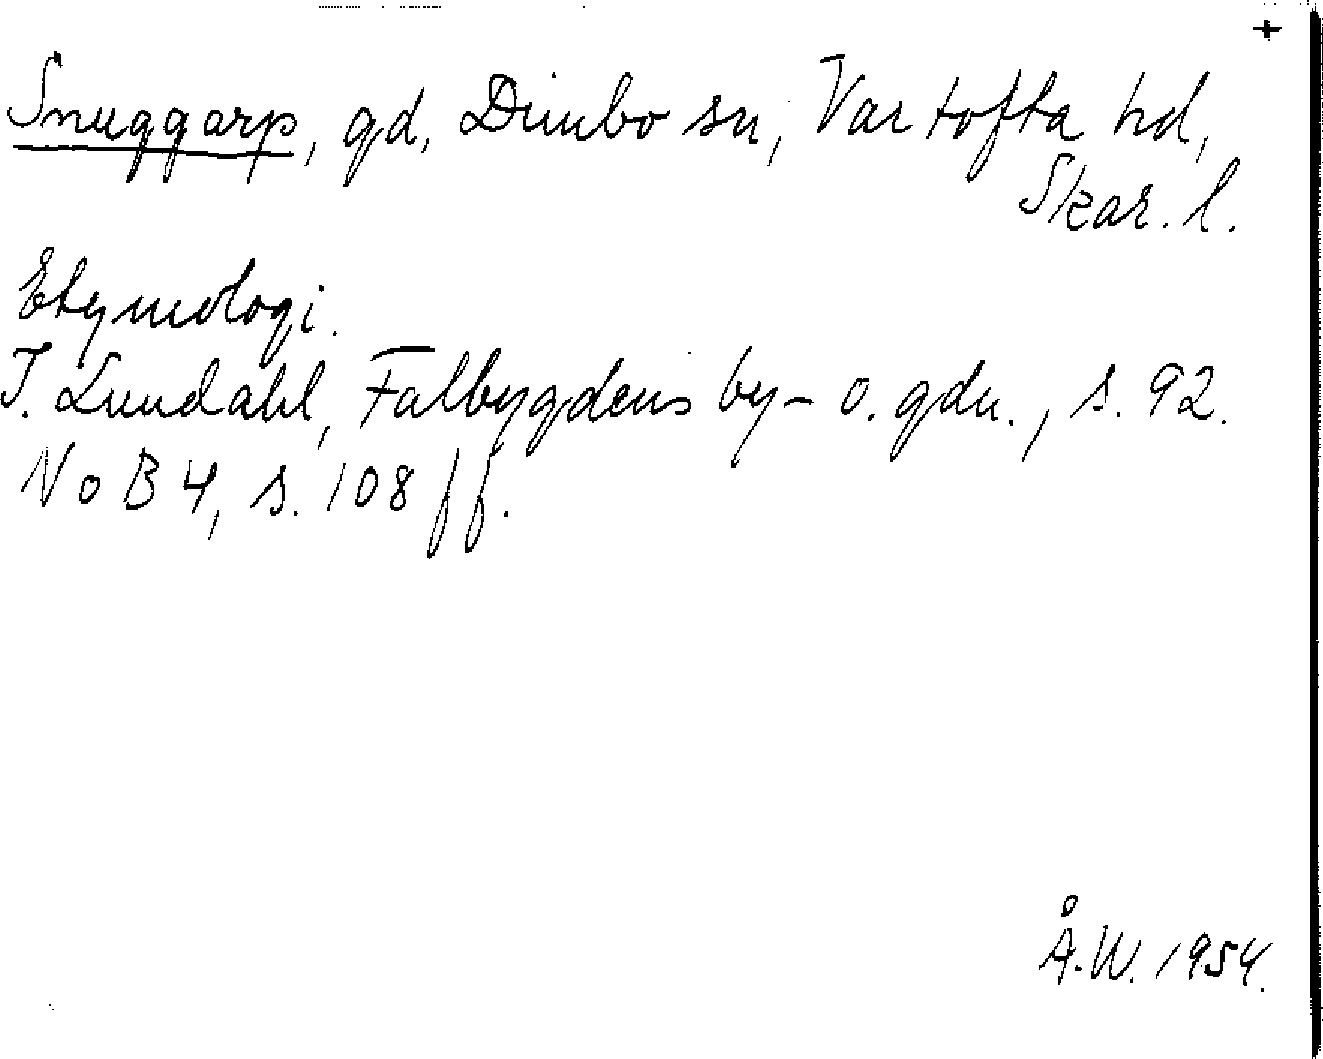 +
Snuggarp, gd, Dimbo sn, Vartofta hd,
Skar. l.
Etymologi.
I. Lundahl, Falbygdens by- o. gdn., s. 92.
NoB 4, s. 108 ff.
Å.W. 1954.